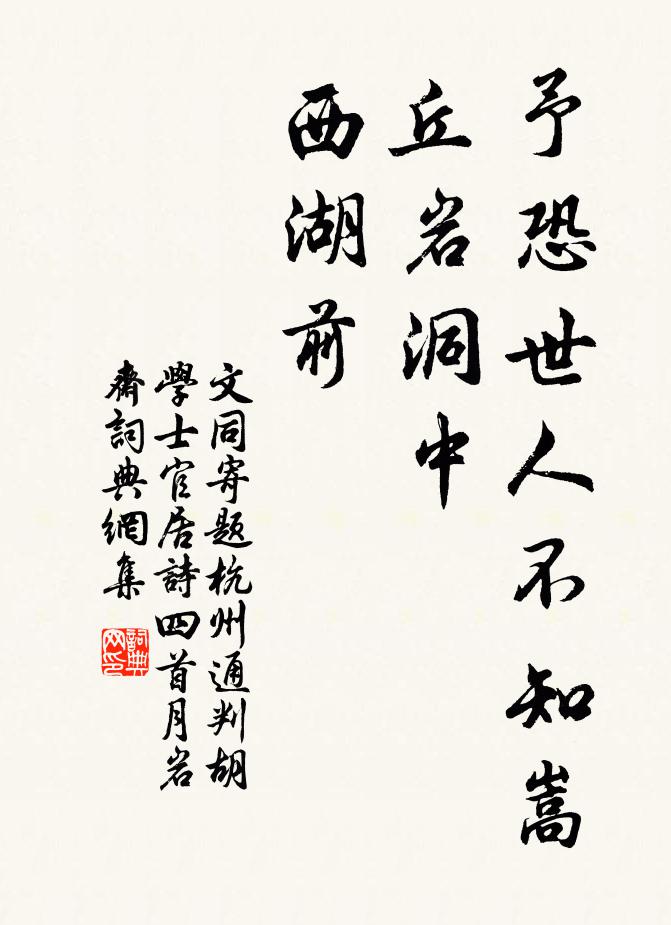 予恐世人不知嵩
丘岩洞中
西湖前
文同寄題杭州通判胡
學士官居詩四首月岩
齋詞典網集
詞典
网印